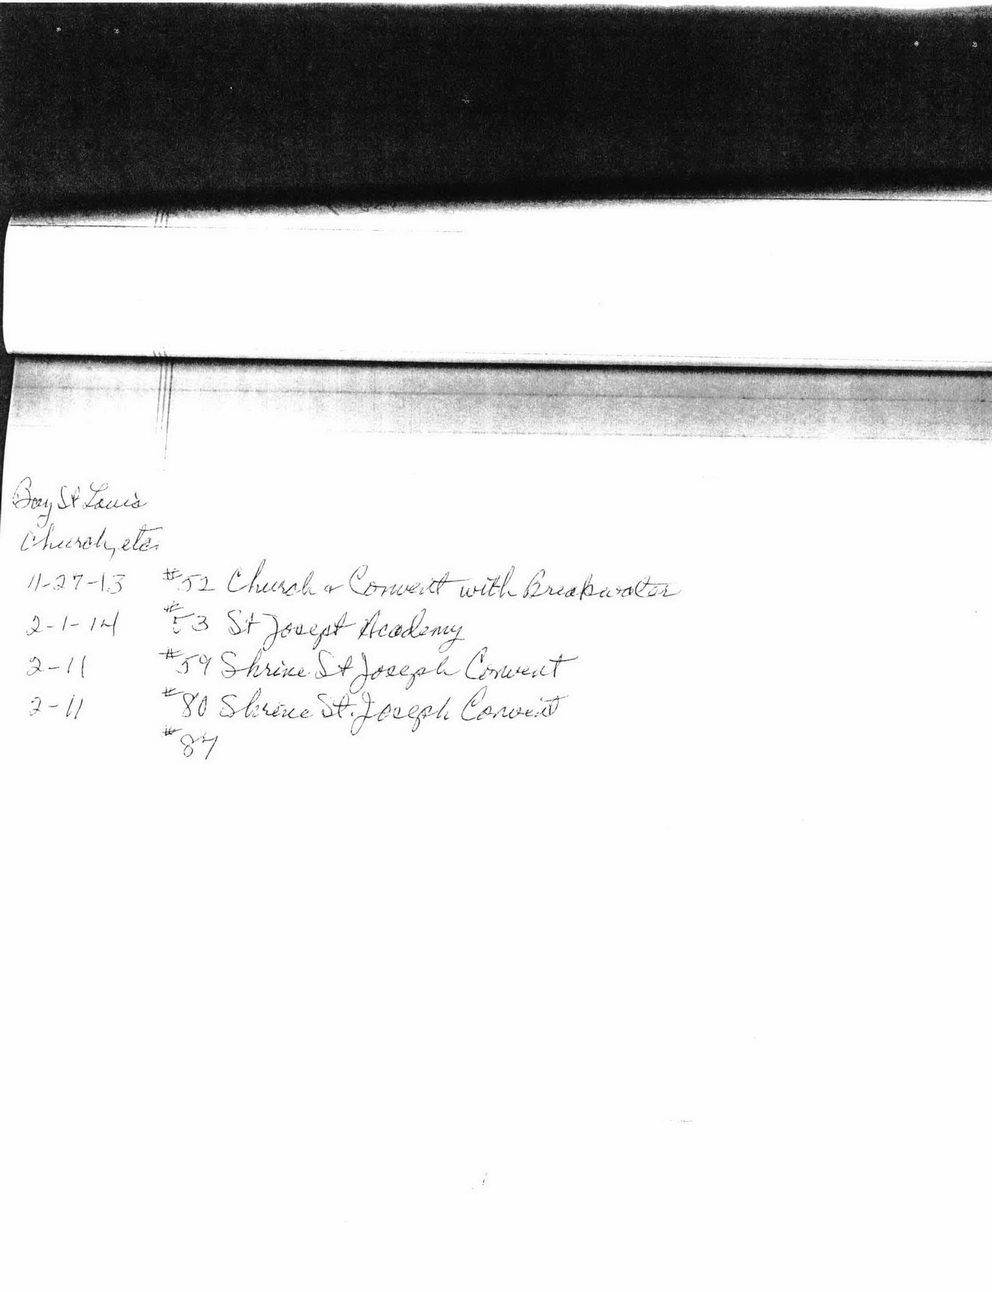 Bay St Louis
Church, etc.
11-27-13 #52 Church & Convent with Breakwater
2-1-14 #53 St Joseph Academy
2-11 #59 Shrine St Joseph Convent
2-11 #80 Shrine St. Joseph Convent
#87